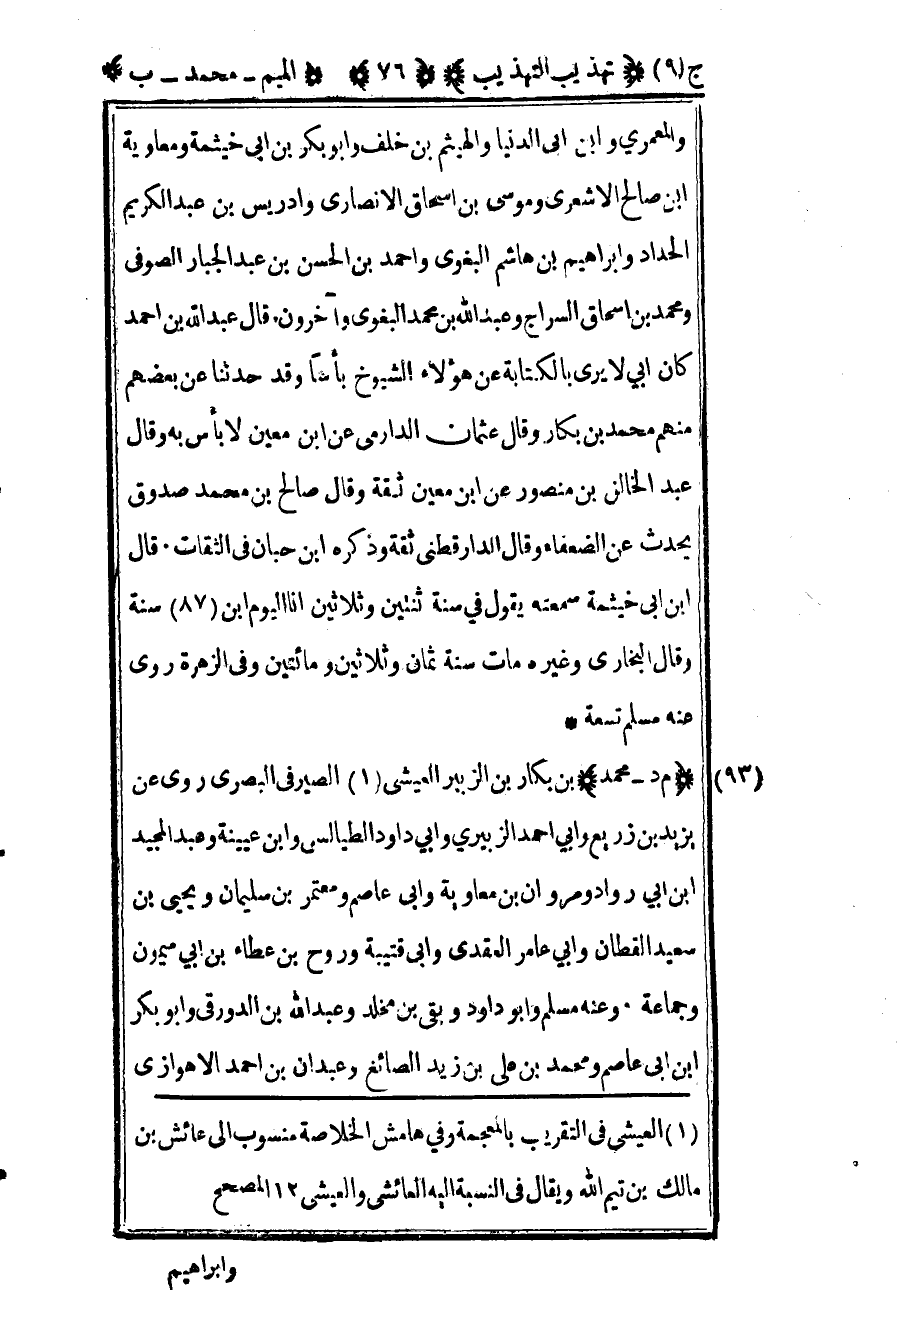 ج(٩) ﴿ تهذيب التهذيب ﴾ ﴿ ٧٦ ﴾ ﴿ الميم ـ محمد ـ ب ﴾
والمعمري وابن ابى الدنيا والهيثم بن خلف وابوبكر بن ابى خيثمة ومعاوية
ابن صالح الاشعرى وموسى بن اسحاق الانصارى وادريس بن عبدالكريم
الحداد وابراهيم بن هاشم البغوى واحمد بن الحسن بن عبدالجبار الصوفى
ومحمد بن اسحاق السراج وعبدالله بن محمد البغوى وآخرون. قال عبدالله بن احمد
كان ابي لا يرى بالكتابة عن هؤلاء الشيوخ بأسًا وقد حدثنا عن بعضهم
منهم محمد بن بكار وقال عثمان الدارمى عن ابن معين لا بأس به وقال
عبد الخالق بن منصور عن ابن معين ثقة وقال صالح بن محمد صدوق
يحدث عن الضعفاء وقال الدارقطنى ثقة وذكره ابن حبان فى الثقات. قال
ابن ابى خيثمة سمعته يقول في سنة ثنتين وثلاثين انا اليوم ابن (٨٧) سنة
وقال البخارى وغيره مات سنة ثمان وثلاثين ومائتين وفى الزهرة روى
عنه مسلم تسعة *
(٩٣) ﴿ م د ـ محمد ﴾ بن بكار بن الزبير العيشى (١) الصيرفى البصرى روى عن
يزيد بن زريع وابي احمد الزبيري وابي داود الطيالسى وابن عيينة وعبدالمجيد
ابن ابي رواد ومروان بن معاوية وابى عاصم ومعتمر بن سليمان ويحيى بن
سعيد القطان وابي عامر العقدى وابى قتيبة وروح بن عطاء بن ابي ميمون
وجماعة. وعنه مسلم وابو داود وبقى بن مخلد وعبدالله بن الدورقى وابو بكر
ابن ابى عاصم ومحمد بن على بن زيد الصائغ وعبدان بن احمد الاهوازى
(١) العيشى فى التقريب بالمعجمة وفي هامش الخلاصة منسوب الى عائش بن
مالك بن تيم الله ويقال فى النسبة اليه العائشى والعيشى ١٢ المصحح
وابراهيم